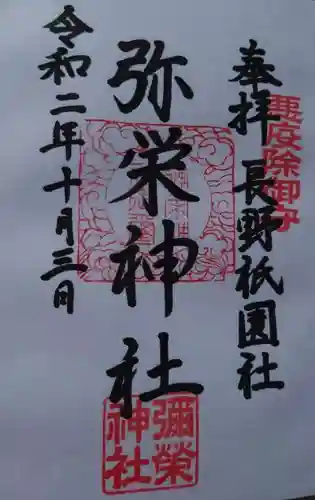 奉拝 長野祇園社
悪疫除御守
弥栄神社
令和二年十月三日
彌榮
神社